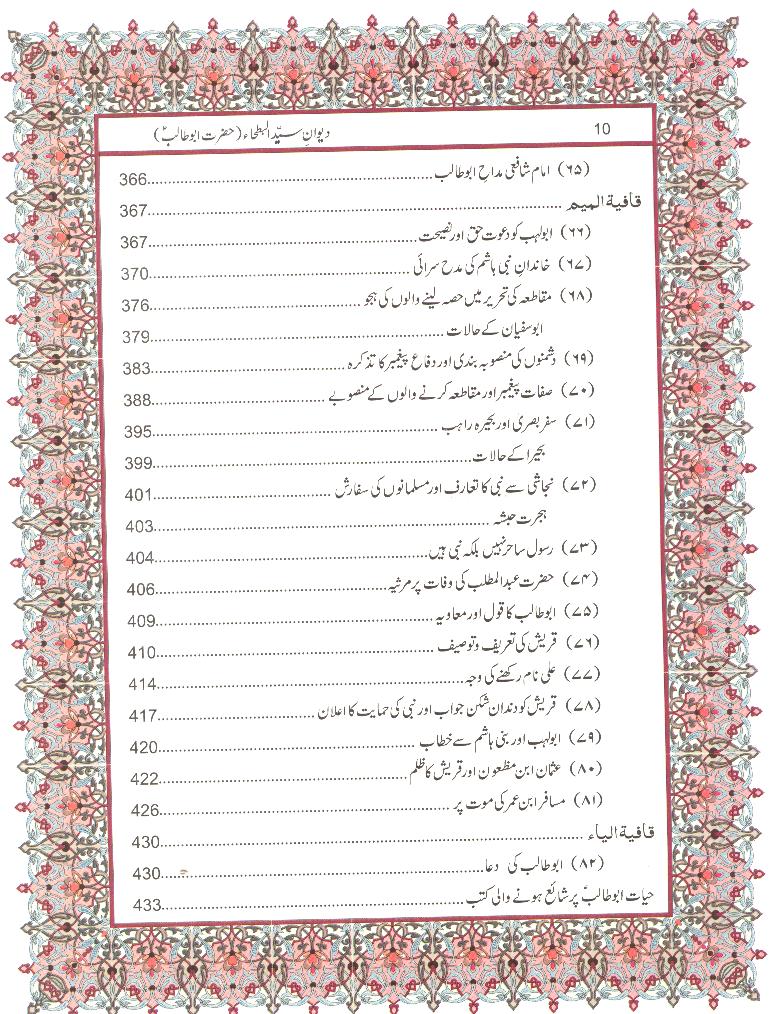 10 دیوانِ سیّد البطحاء (حضرت ابوطالبؑ)
(۶۵) امام شافعی مداحِ ابوطالب 366
قافیة المیم 367
(۶۶) ابولہب کو دعوت حق اور نصیحت 367
(۶۷) خاندانِ نبی ہاشم کی مدح سرائی 370
(۶۸) مقاطعہ کی تحریر میں حصہ لینے والوں کی ہجو 376
ابوسفیان کے حالات 379
(۶۹) دشمنوں کی منصوبہ بندی اور دفاع پیغمبر کا تذکرہ 383
(۷۰) صفات پیغمبر اور مقاطعہ کرنے والوں کے منصوبے 388
(۷۱) سفر بصری اور بحیرہ راہب 395
بحیرا کے حالات 399
(۷۲) نجاشی سے نبی کا تعارف اور مسلمانوں کی سفارش 401
ہجرت حبشہ 403
(۷۳) رسول ساحر نہیں بلکہ نبی ہیں 404
(۷۴) حضرت عبدالمطلب کی وفات پر مرثیہ 406
(۷۵) ابوطالب کا قول اور معاویہ 409
(۷۶) قریش کی تعریف و توصیف 410
(۷۷) علی نام رکھنے کی وجہ 414
(۷۸) قریش کو دندان شکن جواب اور نبی کی حمایت کا اعلان 417
(۷۹) ابولہب اور بنی ہاشم سے خطاب 420
(۸۰) عثمان ابن مظعون اور قریش کا ظلم 422
(۸۱) مسافر ابن عمر کی موت پر 426
قافیة الیاء 430
(۸۲) ابوطالب کی دعا 430
حیات ابوطالبؑ پر شائع ہونے والی کتب 433